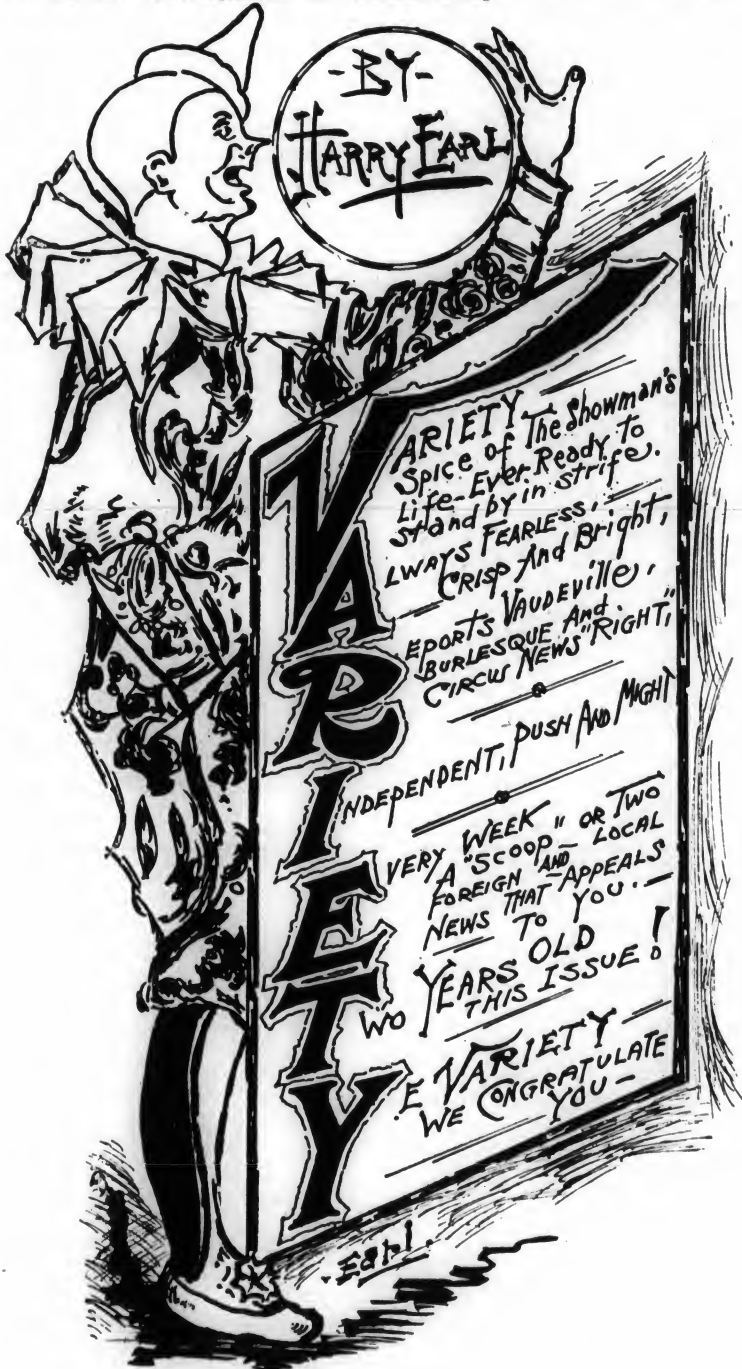 -BY-
HARRY EARL
VARIETY
Spice of The Showman's
Life-Ever Ready To
stand by in strife.
ALWAYS FEARLESS,
CRISP And Bright,
REPORTS VAUDEVILLE,
BURLESQUE And
CIRCUS NEWS "RIGHT,"
INDEPENDENT, PUSH AND MIGHT
EVERY WEEK
A "SCOOP" OR TWO
FOREIGN AND LOCAL
NEWS THAT APPEALS
TO YOU.—
TWO YEARS OLD
THIS ISSUE!
YE VARIETY
WE CONGRATULATE
YOU—
-Earl.